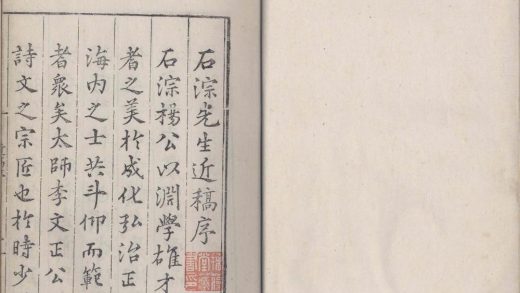 石淙先生近稿序
石淙楊公以淵學雄才
者之美於成化弘治正
海内之士共斗仰而範
者衆矣太師李文正公
詩文之宗匠也於時少